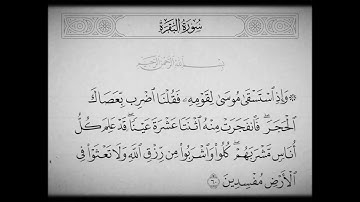 سُورَةُ البَقَرَةِ
بِسْمِ اللَّهِ الرَّحْمَٰنِ الرَّحِيمِ
۞ وَإِذِ ٱسْتَسْقَىٰ مُوسَىٰ لِقَوْمِهِۦ فَقُلْنَا ٱضْرِب بِّعَصَاكَ
ٱلْحَجَرَ ۖ فَٱنفَجَرَتْ مِنْهُ ٱثْنَتَا عَشْرَةَ عَيْنًا ۖ قَدْ عَلِمَ كُلُّ
أُنَاسٍ مَّشْرَبَهُمْ ۖ كُلُوا۟ وَٱشْرَبُوا۟ مِن رِّزْقِ ٱللَّهِ وَلَا تَعْثَوْا۟ فِى
ٱلْأَرْضِ مُفْسِدِينَ ٦٠